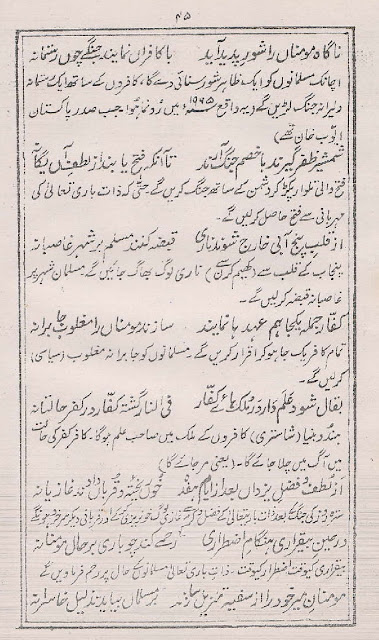 ۴۵
ناگاہ مومناں را شور پدید آید با کافراں نمایند جنگے چوں رستمانہ
اچانک مسلمانوں کو ایک ظاہر شور سنائی دے گا، کافروں کے ساتھ ایک رستمانہ
دلیرانہ جنگ لڑیں گے (یہ واقع ۱۹۶۵ء میں رُونما ہوا، جب صدر پاکستان
ایوب خان تھے)
شمشیر ظفر گیرند با خصم جنگ آرند تا آنکہ فتح یابند از لطف آں یگانہ
فتح والی تلوار پکڑ کر دشمن کے ساتھ جنگ کریں گے حتیٰ کہ ذات باری تعالیٰ کی
مہربانی سے فتح حاصل کر لیں گے۔
از قلب پنج آبی خارج شوند ناری قبضہ کنند مسلم بر شہر غاصبانہ
پنجاب کے قلب سے ناری لوگ بھاگ جائیں گے۔ مسلمان شہر پر
غاصبانہ قبضہ کر لیں گے۔
کفار جملہ یکجا ہم عہد ہا نمایند سازند مومناں را مغلوب جابرانہ
تمام کافر یک جا ہو کر اقرار کریں گے۔ مسلمانوں کو جابرانہ مغلوب (سیاسی)
کر لیں گے۔
بقال شود علم دار در ملک ہائے کفار فی النار گشتہ کفار در کفر حالتانہ
ہندو بنیا (شاستری) کافروں کے ملک میں صاحب علم ہوگا۔ کافر کفر کی حالت
میں آگ میں چلا جائے گا۔ (یعنی مر جائے گا)
از لطف و فضل یزداں بعد از ایام ہفدہ خوں ریختہ و قرباں دادند غازیانہ
سترہ روز کی جنگ کے بعد ذات باری تعالیٰ کے فضل و کرم سے غازی لوگ خونریزی کر کے اور قربانی دیکر سرخرو ہونگے
در حین بیقراری ہنگام اضطراری رحمے کند چو باری بر حال مومنانہ
بیقراری کیوقت اضطرار کیوقت۔ ذات باری تعالیٰ مسلمانوں کے حال پر رحم فرماویں گے
مومنان میر خود را از سفیہ سازند بر مسلماں بیاید تذلیل خاسرانہ